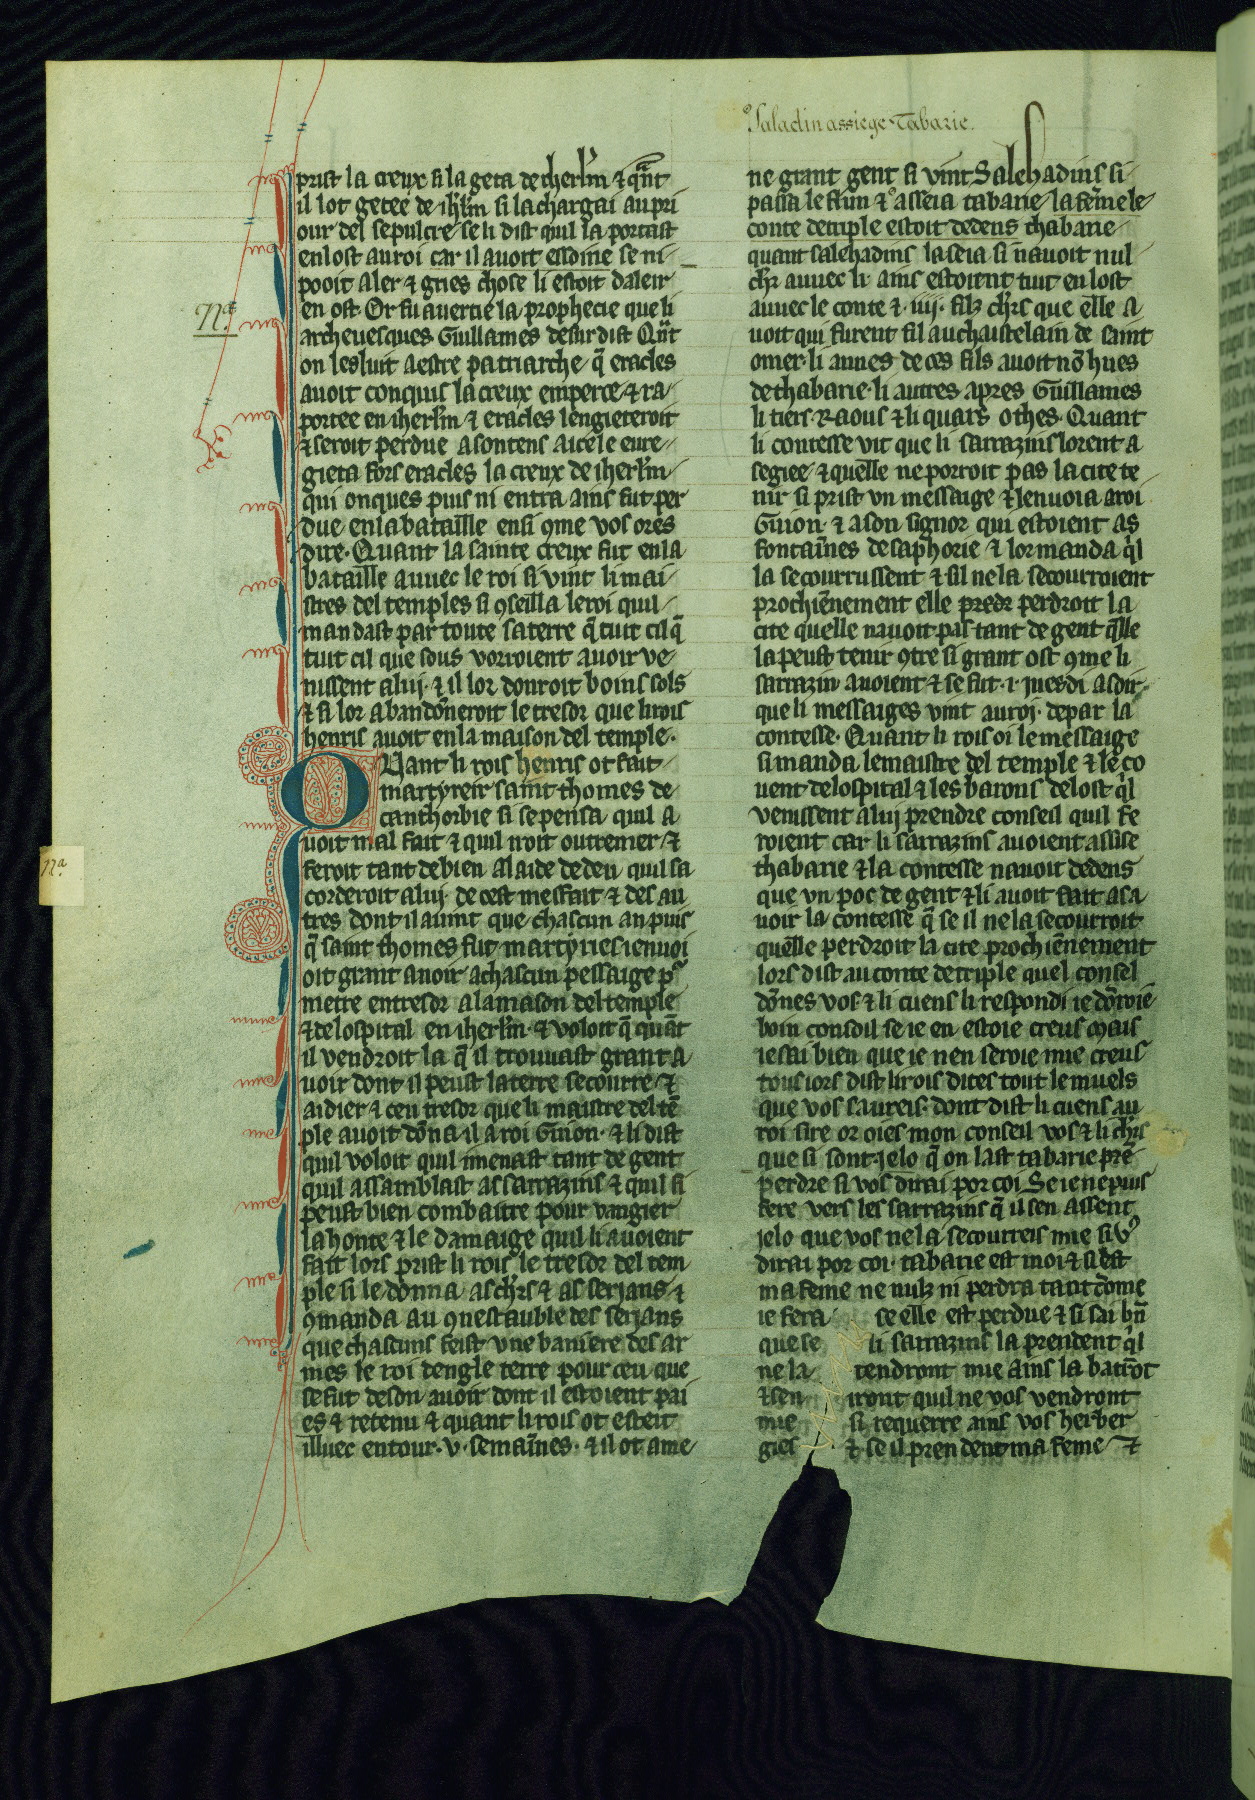 Saladin assiege Tabarie.
prist la creux si la geta de iherl'm & q̃nt
il lot getee de ih'lm si la charga au pri
our del sepulcre se li dist quil la portast
en lost au roi car il avoit essoine se ni
pooit aler & gries chose li estoit daleir
en ost. Or fu avertie la prophecie que li
Na
archevesques Guillames desur dist Qñt
on lesluit a estre patriarche q̃ eracles
avoit conquis la creux en perce & ra
portee en iherl'm & eracles len gieteroit
& seroit perdue a son tens a icele eure
gieta fors eracles la creux de iherl'm
qui onques puis ni entra ains fut per
due en la bataille ensi 9me vos ores
dire. Quant la sainte creux fut en la
bataille avuec le roi si vint li mai
stres del temples si 9seilla le roi quil
mandast par toute sa terre q̃ tuit cil q̃
tuit cil que sous vorroient avoir ve
nissent a lui. & il lor donroit boins sols
& si lor abandoneroit le tresor que li rois
henris avoit en la maison del temple.
Quant li rois henris ot fait
martyreir saint thomes de
canthorbie si se pensa quil a
voit mal fait & quil iroit outremer &
feroit tant de bien a laide de deu quil sa
Na
corderoit a lui de cest mesfait & des au
tres dont il avint que chascun an puis
q̃ saint thomes fut martyries ienvoi
oit grant avoir a chascun pessaige p'
metre en tresor a la maison del temple
& de lospital en iherl'm. & voloit q̃ quãt
il vendroit la q̃ il trouvast grant a
voir dont il peust la terre secourre &
aidier & ceu tresor que li maistre del tẽ
ple avoit dõna il a roi Guion. & li dist
quil voloit quil menast tant de gent
quil assamblast as sarrazins & quil si
peust bien combatre pour vangier
la honte & le damaige quil li avoient
fait lors prist li rois le tresor del tem
ple si le donna as ch'rs & as serjans &
9manda au 9nestauble des serjans
que chascuns feist une baniere des ar
mes le roi dengleterre pour ceu que
se fut de son avoir dont il estoient pai
es & retenu & quant li rois ot esteit
illuec entour .v. semaines. & il ot ame
ne grant gent si vint Salehadins si
passa le flun & asseia tabarie la feme le
conte de triple estoit dedens thabarie
quant salehadins laseia si navoit nul
ch'r avuec li ains estoient tuit en lost
avuec le conte & .iiij. filz ch'rs que elle a
voit qui furent fil au chastelain de saint
omer. li annes de ces fils avoit nõ hues
de thabarie. li autres apres Guillames
li tiers Raous & li quars othes. Quant
li contesse vit que li sarrazins lorent a
segiee & quelle ne porroit pas la cite te
nir si prist un messaige & lenvoia a roi
Guion & a son signor qui estoient as
fontaines de saphorie & lor manda q'l
la secourrussent & sil ne la secourroient
prochienement elle predr perdroit la
cite quelle navoit pas tant de gent q̃lle
la peust tenir 9tre si grant ost 9me li
sarrazin avoient & se fut .i. juesdi a soir
que li messaiges vint au roi. de par la
contesse. Quant li rois oi le messaige
si manda le maistre del temple & le co
vent de lospital & les barons de lost q'l
venissent a lui prendre conseil quil fe
roient car li sarrazins avoient assise
thabarie & la contesse navoit dedens
que un poc de gent & li avoit fait a sa
voir la contesse q̃ se il ne la secourroit
quelle perdroit la cite prochienement
lors dist au conte de triple quel consel
dõnes vos & li cuens li respondi ie dõroiẽ
boin consoil se ie en estoie creus mais
ie sai bien que ie nen seroie mie creus
tous iors dist li rois dites tout le muels
que vos saureis. dont dist li cuens au
roi sire or oies mon conseil vos & li ch'rs
que si sont. ie lo q̃ on last tabarie prẽ
perdre si vos dirai por coi Se ie ne puis
fere vers les sarrazins q̃ il sen assent
ie lo que vos ne la secourreis mie si v9
dirai por coi. tabarie est moi & si est
ma feme ne nulz ni perdra tant cõme
ie fera se elle est perdue & si sai bñ
que se li sarrazins la prendent q'l
ne la tendront mie ains la batrõt
& sen iront quil ne vos vendront
mie si requerre ains vos heiber
gies & se il prendent ma feme &